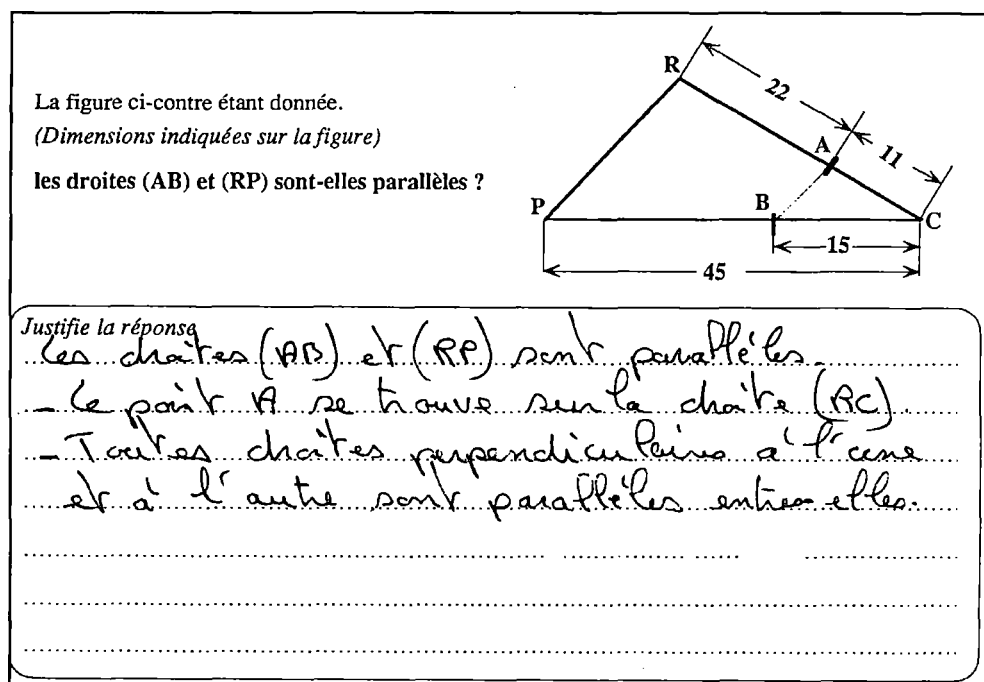 La figure ci-contre étant donnée.
(Dimensions indiquées sur la figure)
les droites (AB) et (RP) sont-elles parallèles ?
R
22
A
11
P
B
C
15
45
Justifie la réponse
Les droites (AB) et (RP) sont parallèles.
- Le point A se trouve sur la droite (RC).
- Toutes droites perpendiculaires à l'une
et à l'autre sont parallèles entre-elles.